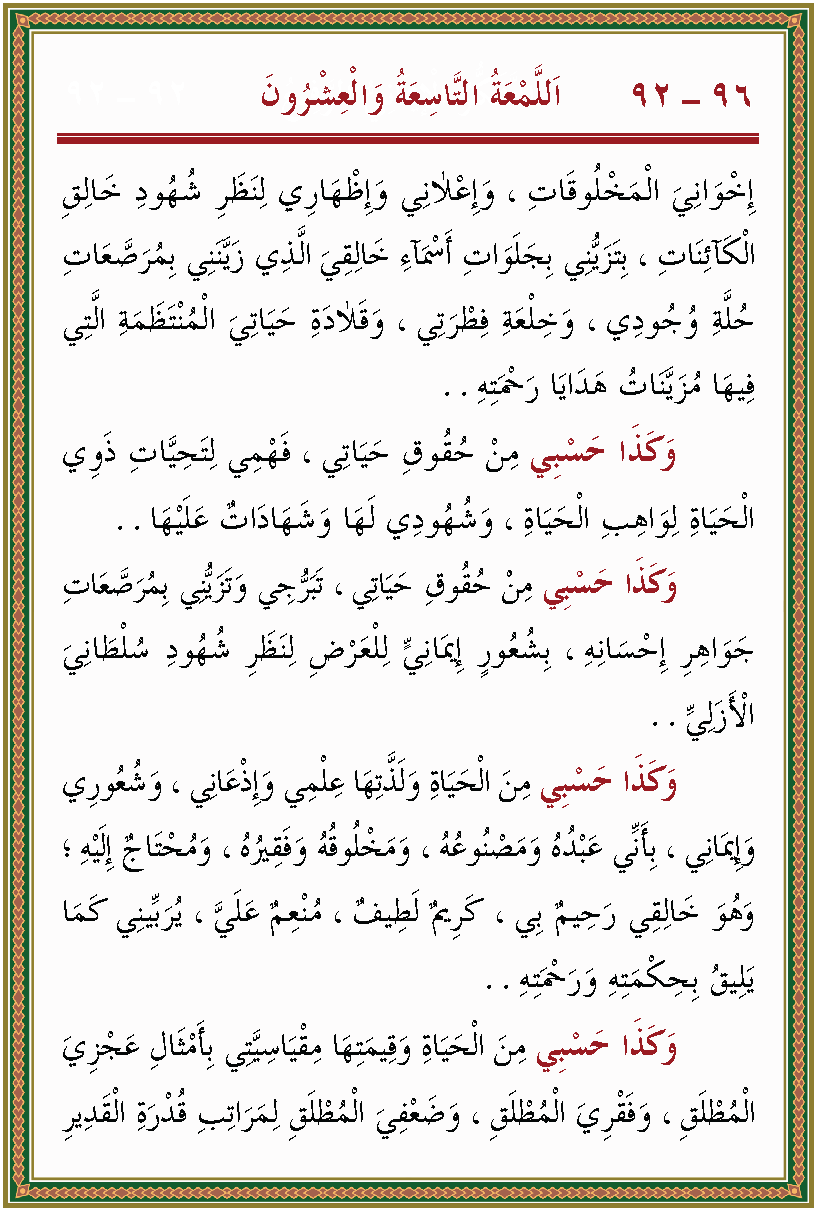 ٩٦ – ٩٢ اَللَّمْعَةُ التَّاسِعَةُ وَالْعِشْرُونَ
إِخْوَانِيَ الْمَخْلُوقَاتِ ، وَإِعْلاٰنِي وَإِظْهَارِي لِنَظَرِ شُهُودِ خَالِقِ
الْكَآئِنَاتِ ، بِتَزَيُّنِي بِجَلَوَاتِ أَسْمَآءِ خَالِقِيَ الَّذِي زَيَّنَنِي بِمُرَصَّعَاتِ
حُلَّةِ وُجُودِي ، وَخِلْعَةِ فِطْرَتِي ، وَقَلاٰدَةِ حَيَاتِيَ الْمُنْتَظَمَةِ الَّتِي
فِيهَا مُزَيَّنَاتُ هَدَايَا رَحْمَتِهِ . .
وَكَذَا حَسْبِي مِنْ حُقُوقِ حَيَاتِي ، فَهْمِي لِتَحِيَّاتِ ذَوِي
الْحَيَاةِ لِوَاهِبِ الْحَيَاةِ ، وَشُهُودِي لَهَا وَشَهَادَاتٌ عَلَيْهَا . .
وَكَذَا حَسْبِي مِنْ حُقُوقِ حَيَاتِي ، تَبَرُّجِي وَتَزَيُّنِي بِمُرَصَّعَاتِ
جَوَاهِرِ إِحْسَانِهِ ، بِشُعُورٍ إِيمَانِيٍّ لِلْعَرْضِ لِنَظَرِ شُهُودِ سُلْطَانِيَ
الْأَزَلِيِّ . .
وَكَذَا حَسْبِي مِنَ الْحَيَاةِ وَلَذَّتِهَا عِلْمِي وَإِذْعَانِي ، وَشُعُورِي
وَإِيمَانِي ، بِأَنِّي عَبْدُهُ وَمَصْنُوعُهُ ، وَمَخْلُوقُهُ وَفَقِيرُهُ ، وَمُحْتَاجٌ إِلَيْهِ ؛
وَهُوَ خَالِقِي رَحِيمٌ بِي ، كَرِيمٌ لَطِيفٌ ، مُنْعِمٌ عَلَيَّ ، يُرَبِّينِي كَمَا
يَلِيقُ بِحِكْمَتِهِ وَرَحْمَتِهِ . .
وَكَذَا حَسْبِي مِنَ الْحَيَاةِ وَقِيمَتِهَا مِقْيَاسِيَّتِي بِأَمْثَالِ عَجْزِيَ
الْمُطْلَقِ ، وَفَقْرِيَ الْمُطْلَقِ ، وَضَعْفِيَ الْمُطْلَقِ لِمَرَاتِبِ قُدْرَةِ الْقَدِيرِ